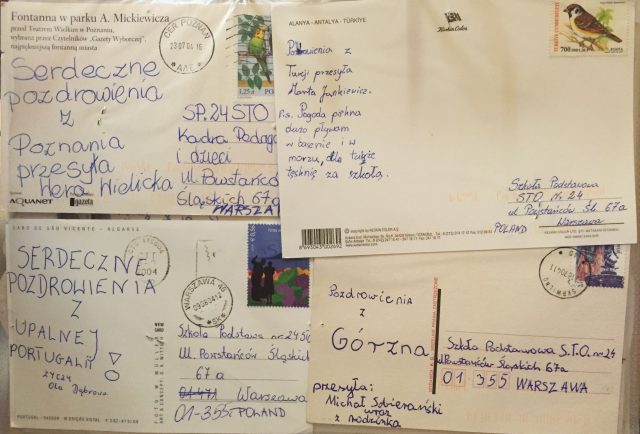 Fontanna w parku A. Mickiewicza
przed Teatrem Wielkim w Poznaniu,
wybrana przez Czytelników „Gazety Wyborczej",
najpiękniejszą fontanną miasta
CER POZNAŃ
23 07 04 16
AAE
1,25 zł
Serdeczne
pozdrowienia
z
Poznania
przesyła
Hera Wielicka
SP. 24 STO
Kadra Pedag
i dzieci
ul. Powstańcó
Śląskich 67a
WARSZAW
AQUANET
gazeta
ALANYA - ANTALYA - TÜRKİYE
Keskin Color
TÜRKİYE CUMHURİYETİ
700
Pozdrowienia z
Turcji przesyła
Marta Jankiewicz.
P.s. Pogoda piękna
dużo pływam
w basenie i w
morzu, ale tu też
tęsknię za szkołą.
Szkoła Podstawowa
STO Nr 24
ul. Powstańców Śl. 67a
Warszawa
POLAND
copyright by KESKİN COLOR A.Ş.
8 693045 002692
CABO DE SÃO VICENTE - ALGARVE
SERDECZNE
POZDROWIENIA
Z
UPALNEJ
PORTUGALII!
Ola Dąbrowa
PORTUGAL
004
WARSZAWA 40
SK
Szkoła Podstawowa nr 24 STO
Ul. Powstańców Śląskich
67a
01-471 Warszawa
01-355 POLAND
Pozdrowienia
z
Górzna
przesyła:
Michał Sobierański
wraz
z rodzinką
Szkoła Podstawowa S.T.O. nr 24
ul. Powstańców Śląskich 67a
01 355 WARSZAWA